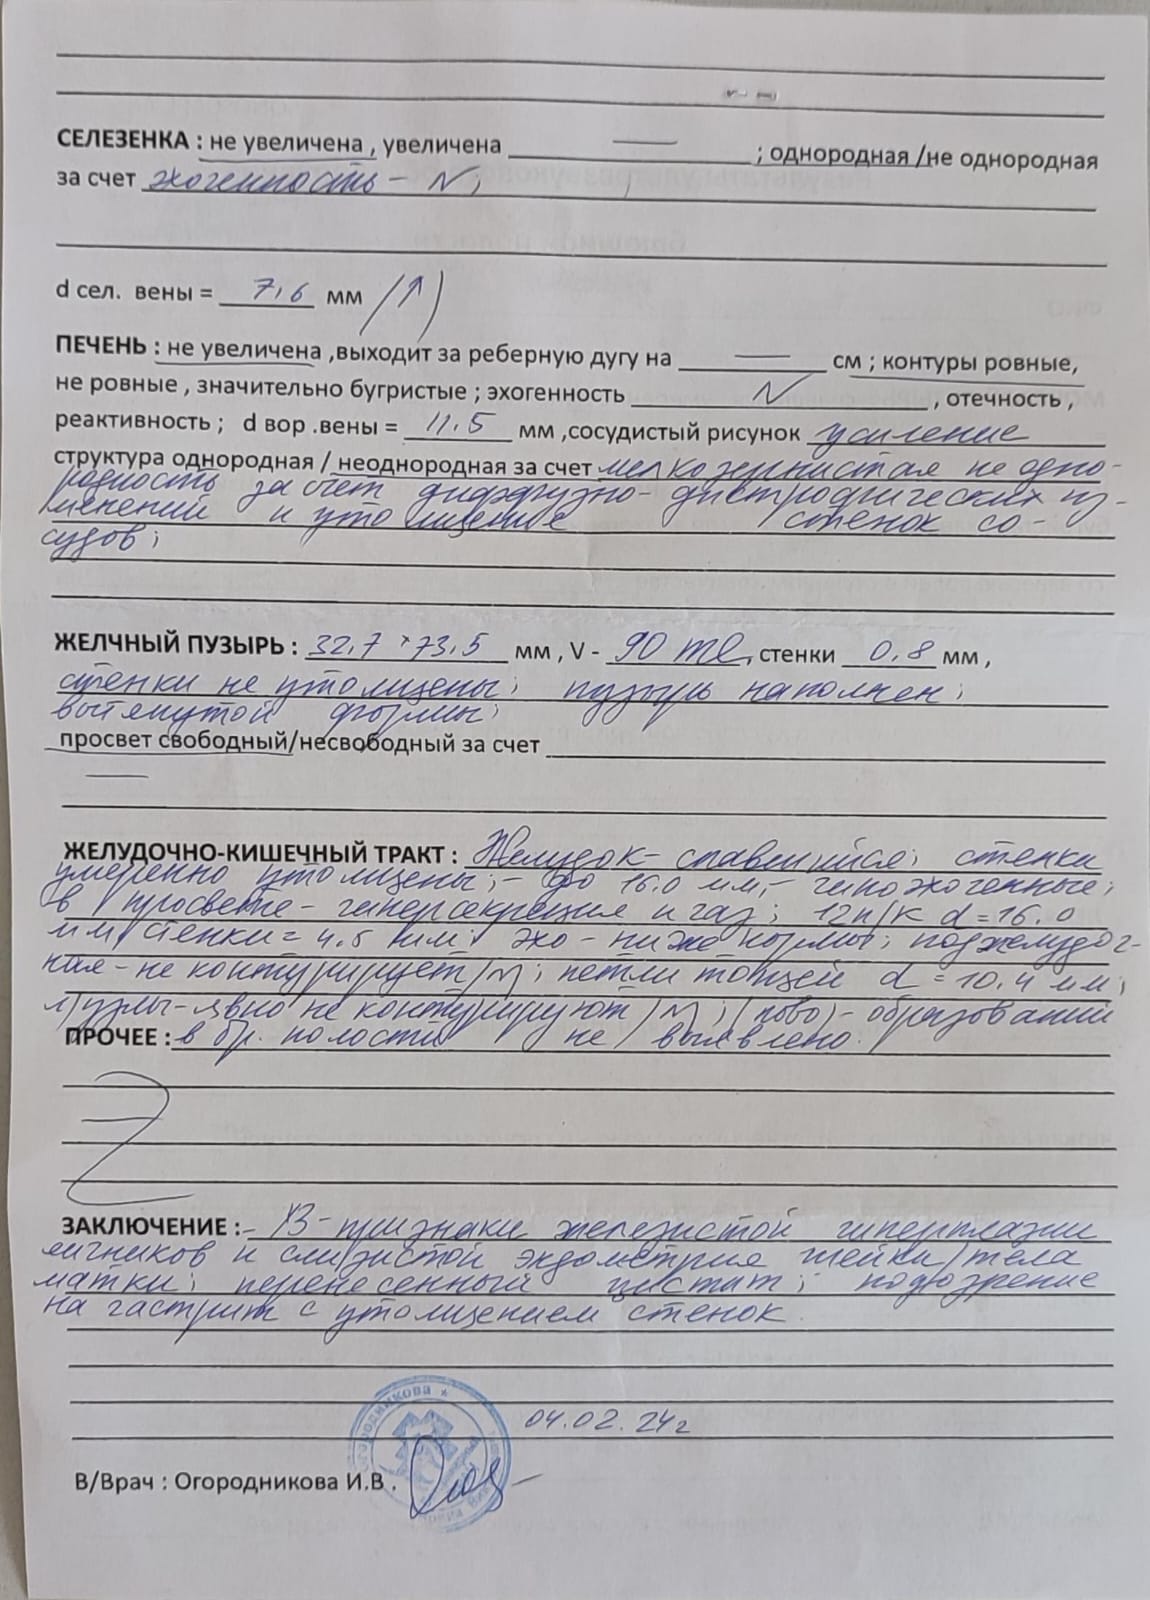 СЕЛЕЗЕНКА : не увеличена , увеличена — ; однородная /не однородная
за счет эхогенность - N;
d сел. вены = 7,6 мм (↑)
ПЕЧЕНЬ : не увеличена ,выходит за реберную дугу на — см ; контуры ровные,
не ровные , значительно бугристые ; эхогенность N , отечность ,
реактивность ; d вор .вены = 11.5 мм ,сосудистый рисунок усиление
структура однородная / неоднородная за счет мелкозернистая не одно-
родность за счет диффузно - дистрофических из-
менений и утолщение стенок со-
судов;
ЖЕЛЧНЫЙ ПУЗЫРЬ : 32,7 × 73,5 мм , V - 90 ml, стенки 0.8 мм ,
стенки не утолщены; пузырь наполнен;
вытянутой формы;
просвет свободный/несвободный за счет
—
ЖЕЛУДОЧНО-КИШЕЧНЫЙ ТРАКТ : Желудок - спавшийся; стенки
умеренно утолщены; - до 16.0 мм, - гипоэхогенные;
в просвете - гиперсекреция и газ; 12п/к d = 16.0
мм стенки = 4.5 мм; эхо - ниже нормы; поджелудоч-
ная - не контурирует /N/; петли тощей d = 10.4 мм;
л/узлы - явно не контурируют /N/; (ново) - образований
ПРОЧЕЕ : в бр. полости не выявлено.
ЗАКЛЮЧЕНИЕ : - УЗ - признаки железистой гиперплазии
яичников и слизистой эндометрия шейки/тела
матки; перенесенный цистит; подозрение
на гастрит с утолщением стенок.
04.02.24г
В/Врач : Огородникова И.В .
Огородникова